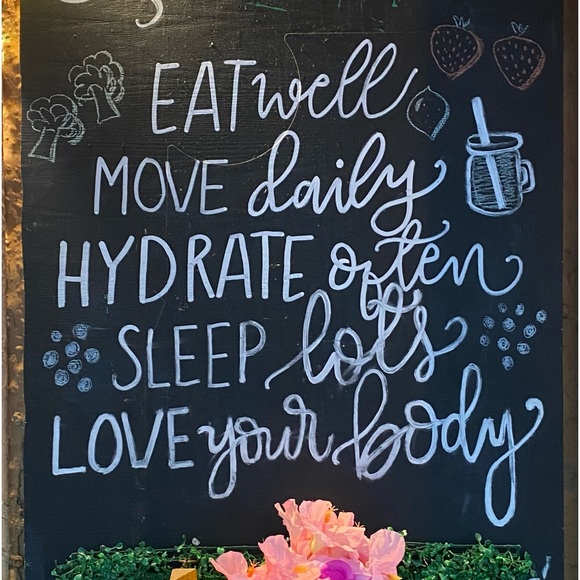 EAT well
MOVE daily
HYDRATE often
SLEEP lots
LOVE your body